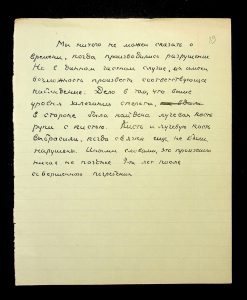 19
Мы ничего не можем сказать о
времени, когда производились разрушения
Но в данном частном случае, мы имеем
возможность произвести соответствующие
наблюдение: Дело в том, что выше
уровня залегания скелета,
в стороне была найдена лучевая кость
руки с кистью. Кисть и лучевую кость
выбросили, когда связки еще не были
нарушены. Иными словами, это произошло
никак не позднее лет после
совершенного погребения.